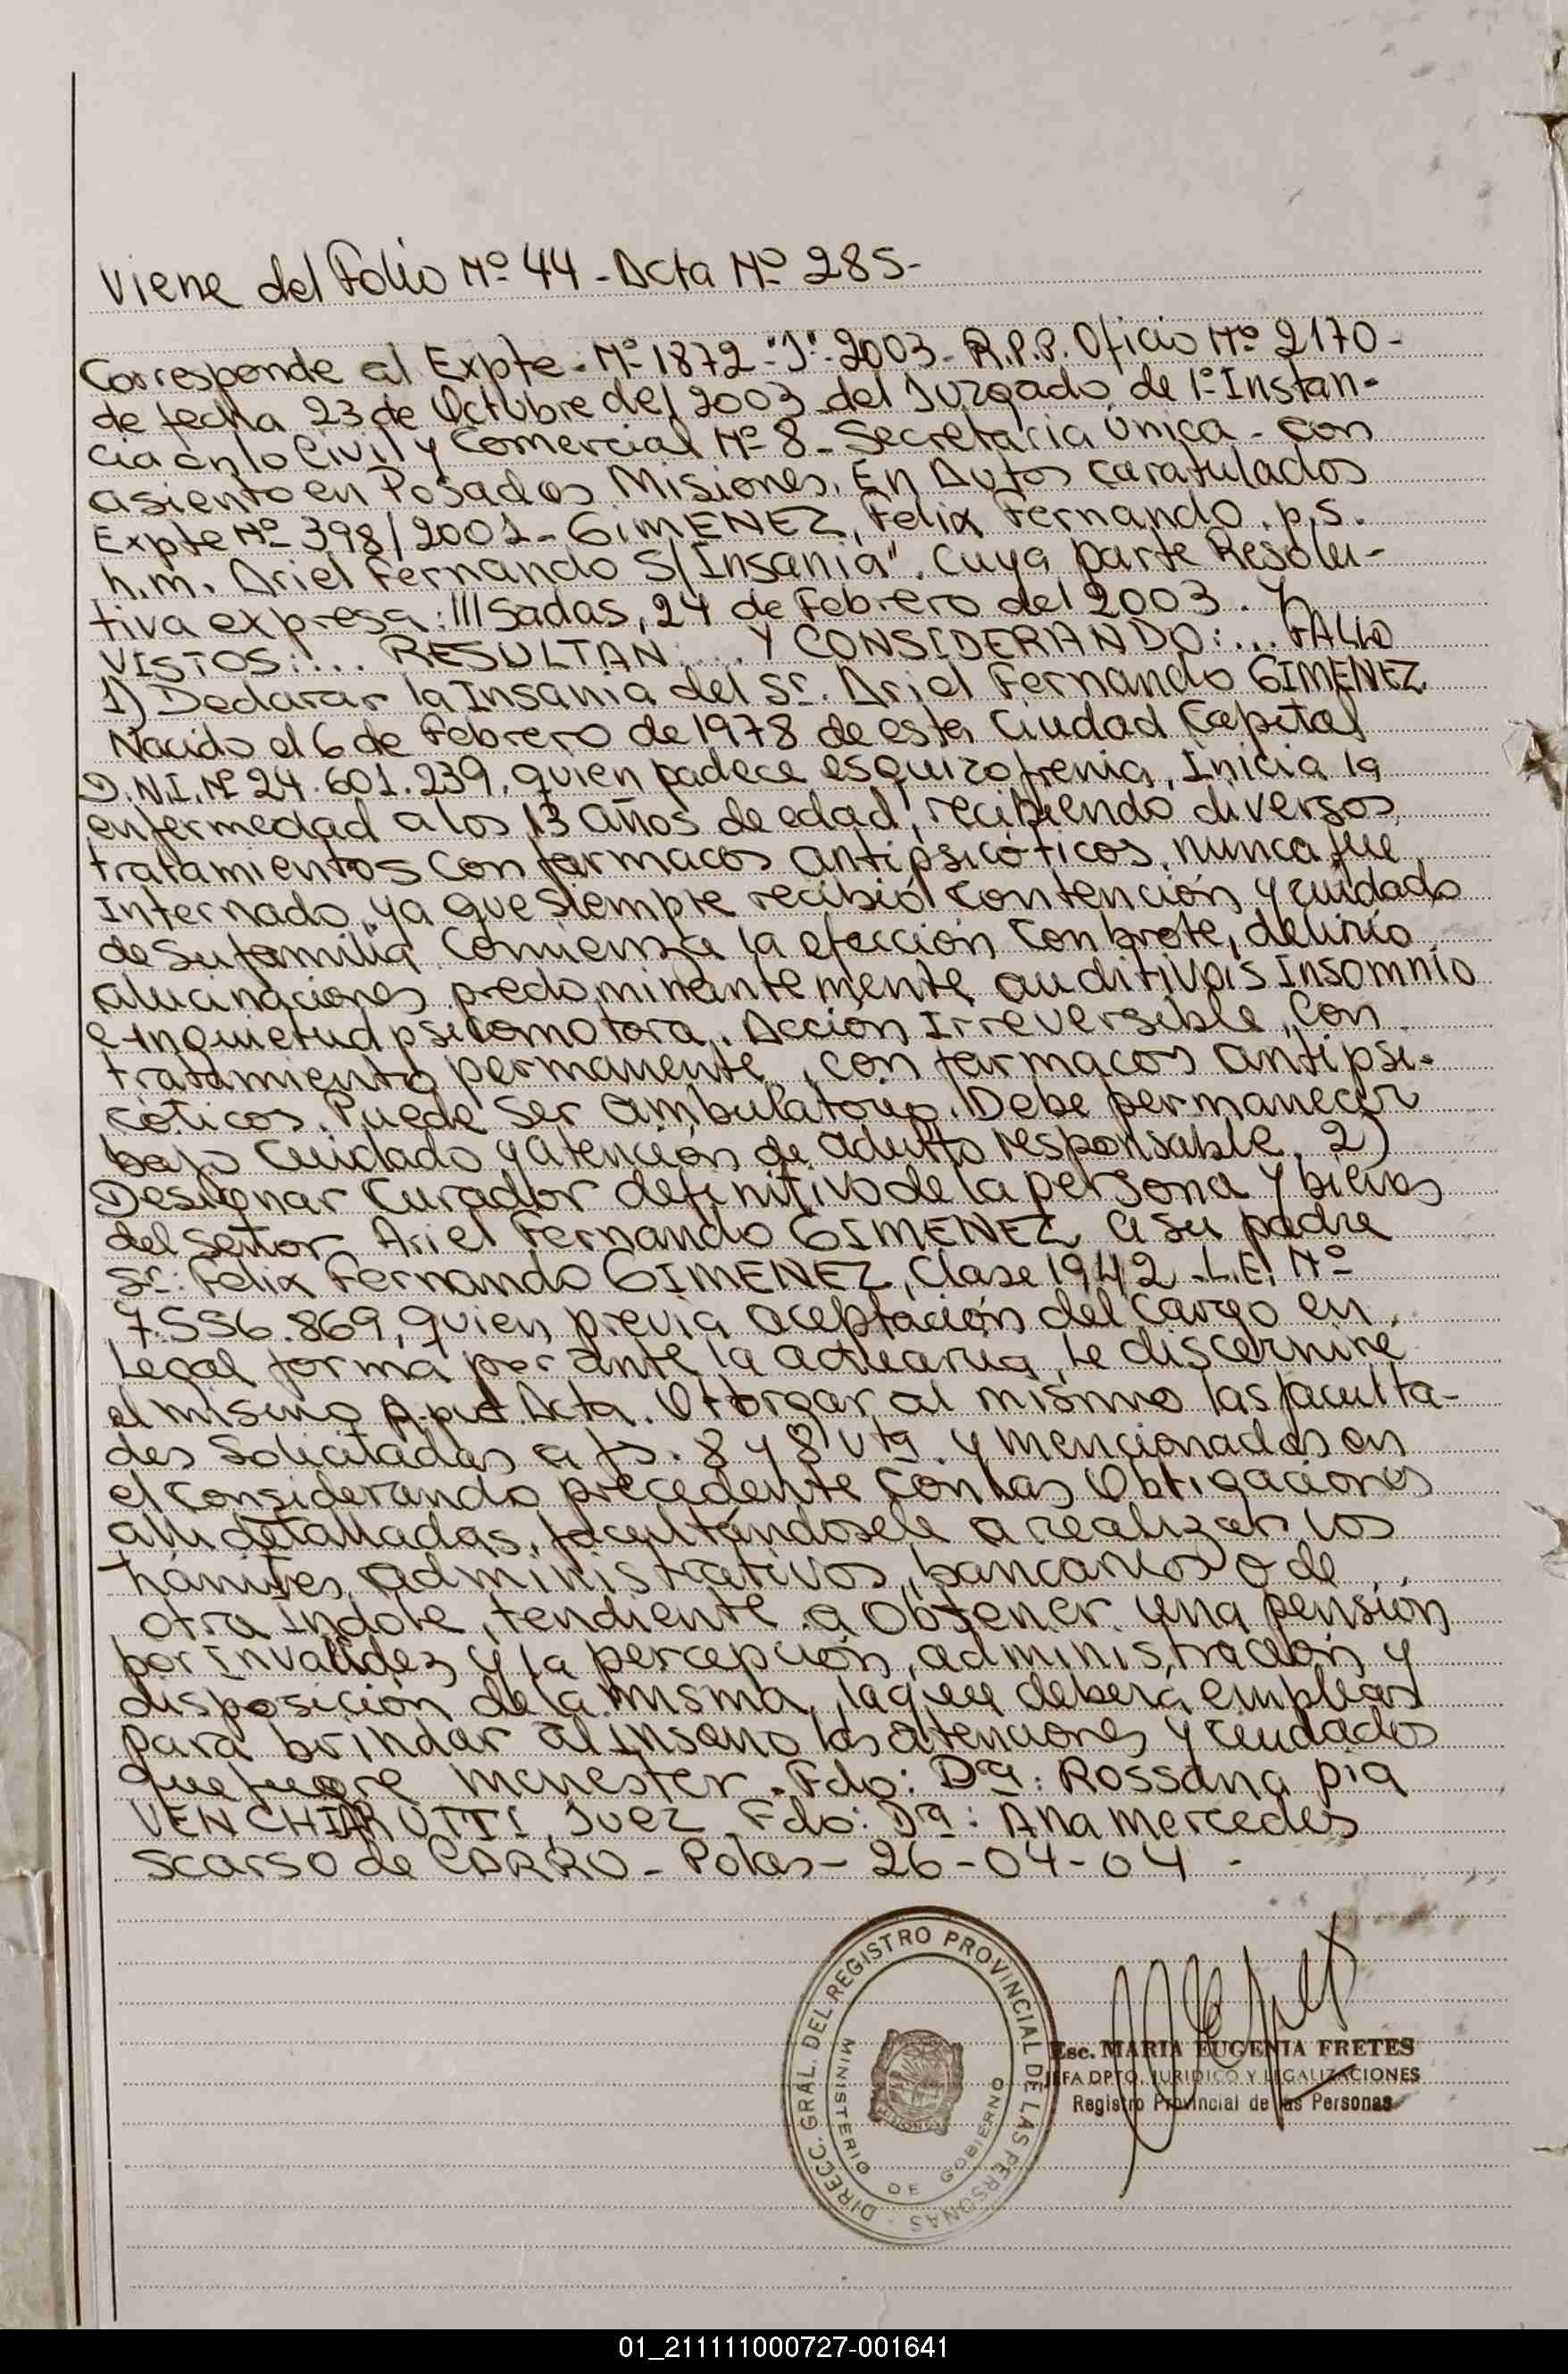 Viene del Folio Nº 44 - Acta Nº 285-
Corresponde al Expte. Nº 1872 - "J" - 2003 - R.P.P. Oficio Nº 2170 -
de fecha 23 de Octubre del 2003 del Juzgado de 1º Instan-
cia en lo Civil y Comercial Nº 8 - Secretaria Unica - con
asiento en Posadas Misiones. En Autos caratulados
Expte Nº 398/2001 - GIMENEZ, Felix Fernando. p.s.
h.m. Ariel Fernando S/Insania". Cuya parte Resolu-
tiva expresa: ///sadas, 24 de Febrero del 2003. Y
VISTOS:... RESULTAN:... Y CONSIDERANDO:... FALLO
1) Declarar la Insania del Sr. Ariel Fernando GIMENEZ
Nacido el 6 de Febrero de 1978 de esta Ciudad Capital
D.N.I. Nº 24.601.239, quien padece esquizofrenia, Inicia la
enfermedad a los 13 años de edad, recibiendo diversos
tratamientos con farmacos antipsicóticos, nunca fue
Internado, ya que siempre recibió contención y cuidado
de su familia. Comienza la efección con brote, delirio
alucinaciones predominantemente auditivas Insomnio
e Inquietud psicomotora. Acción Irreversible, Con
tratamiento permanente, con farmacos antipsi-
cóticos. Puede ser ambulatorio. Debe permanecer
bajo cuidado y atención de adulto responsable. 2)
Designar Curador definitivo de la persona y bienes
del señor Ariel Fernando GIMENEZ a su padre
Sr: Felix Fernando GIMENEZ, Clase 1942 - L.E. Nº
7.556.869, quien previa aceptación del cargo en
Legal forma por ante la actuaria, le discernire
el mismo Acta. Ottorgar al mismo las faculta-
des Solicitadas a fs. 8 y 8 vta. y mencionadas en
el considerando precedente con las Obligaciones
alli detalladas, facultándosele a realizar los
tramites administrativos, bancarios o de
otra Indole, tendiente a Obtener una pensión
por Invalidez y la percepción, administración y
disposición de la misma, la que debera emplear
para brindar al Insano las atenciones y cuidados
que fuere menester. Fdo: Dra: Rossana pia
VENCHIARUTTI, Juez Fdo: Dra: Ana Mercedes
Scarso de CARRO - Pdas - 26-04-04 -
DIRECC. GRAL. DEL REGISTRO PROVINCIAL DE LAS PERSONAS -
MINISTERIO DE GOBIERNO
MISIONES
Esc. MARIA EUGENIA FRETES
JEFA DPTO. JURIDICO Y LEGALIZACIONES
Registro Provincial de las Personas
01_211111000727-001641